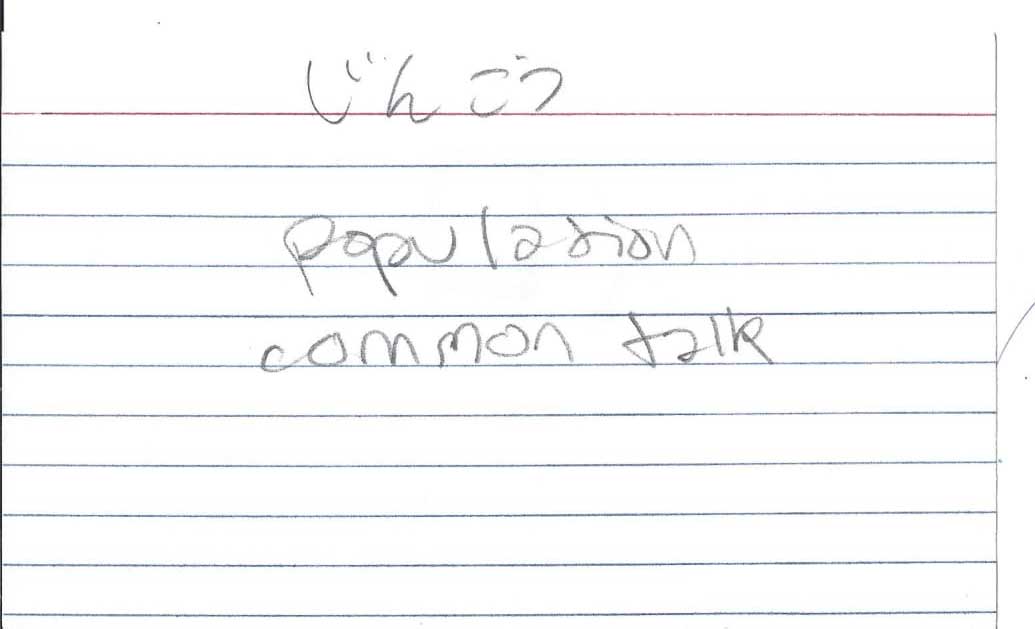 じんこう
population
common talk